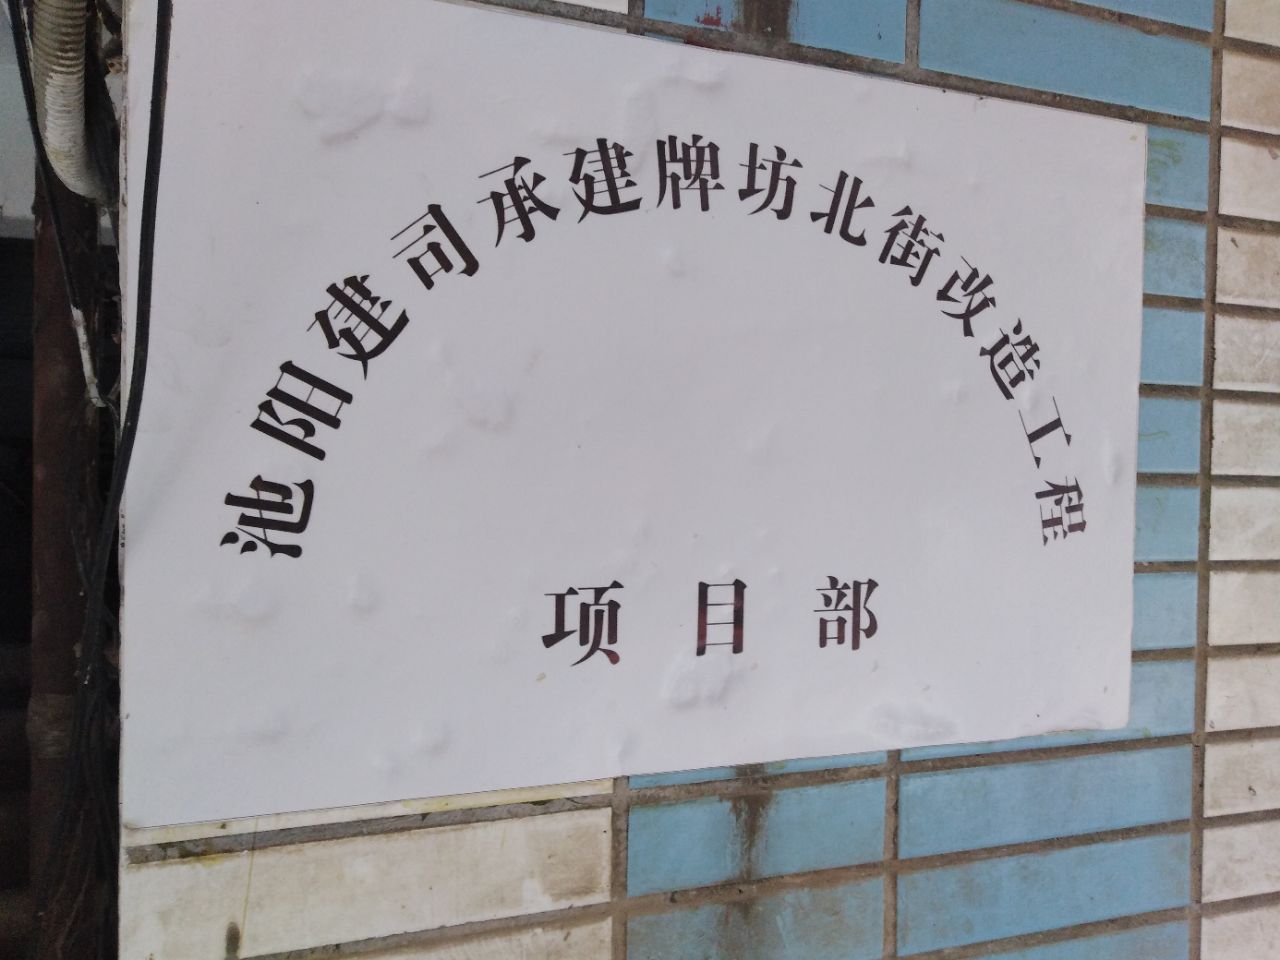 池阳建司承建牌坊北街改造工程
项目部